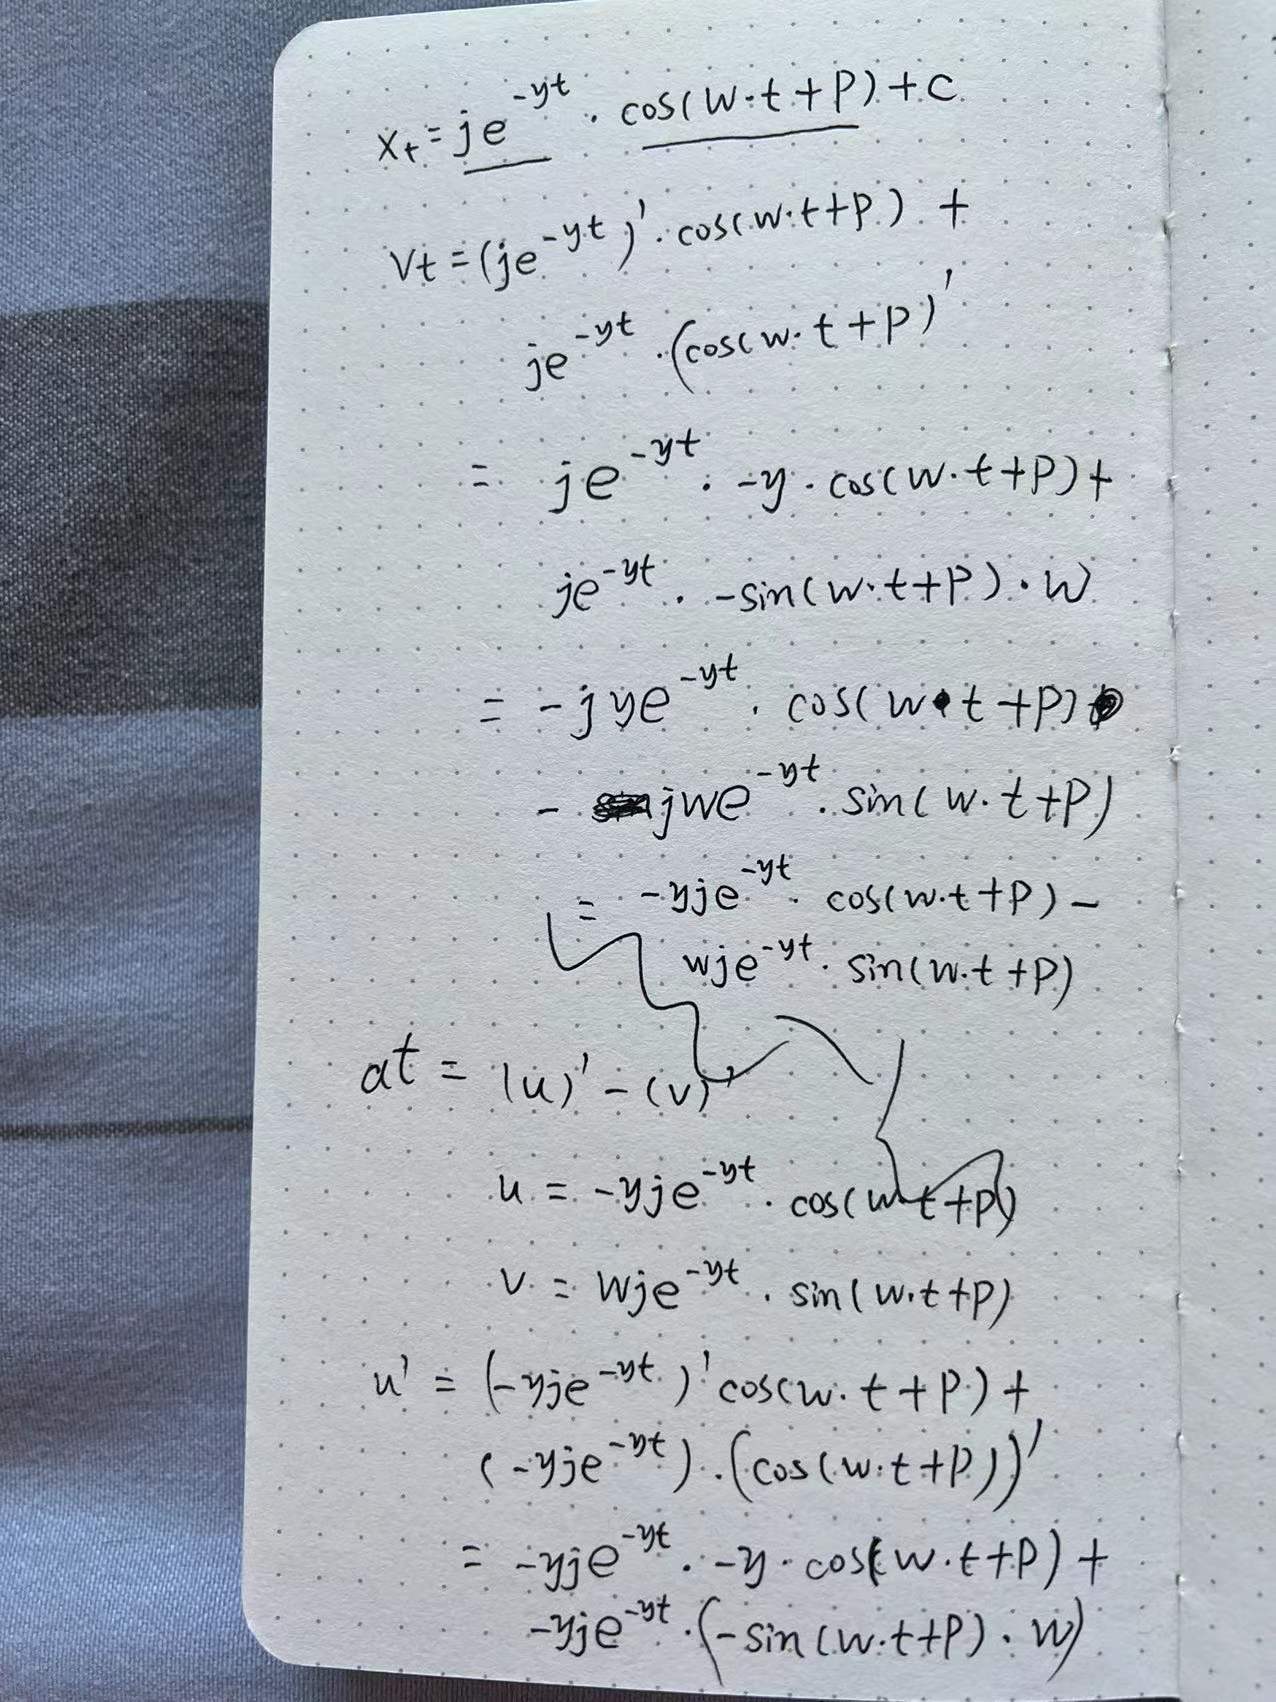 x_t = je^{-yt} · cos(w·t+p)+c
vt = (je^{-yt})' · cos(w·t+p) +
je^{-yt} · (cos(w·t+p)'
= je^{-yt} · -y · cos(w·t+p)+
je^{-yt} · -sin(w·t+p) · w
= -jye^{-yt} · cos(w·t+p)
- jwe^{-yt} · sin(w·t+p)
= -yje^{-yt} · cos(w·t+p) -
wje^{-yt} · sin(w·t+p)
at = (u)' - (v)'
u = -yje^{-yt} · cos(w·t+p)
v = wje^{-yt} · sin(w·t+p)
u' = (-yje^{-yt})' cos(w·t+p) +
(-yje^{-yt}) · (cos(w·t+p))'
= -yje^{-yt} · -y · cos(w·t+p) +
-yje^{-yt} · (-sin(w·t+p) · w)